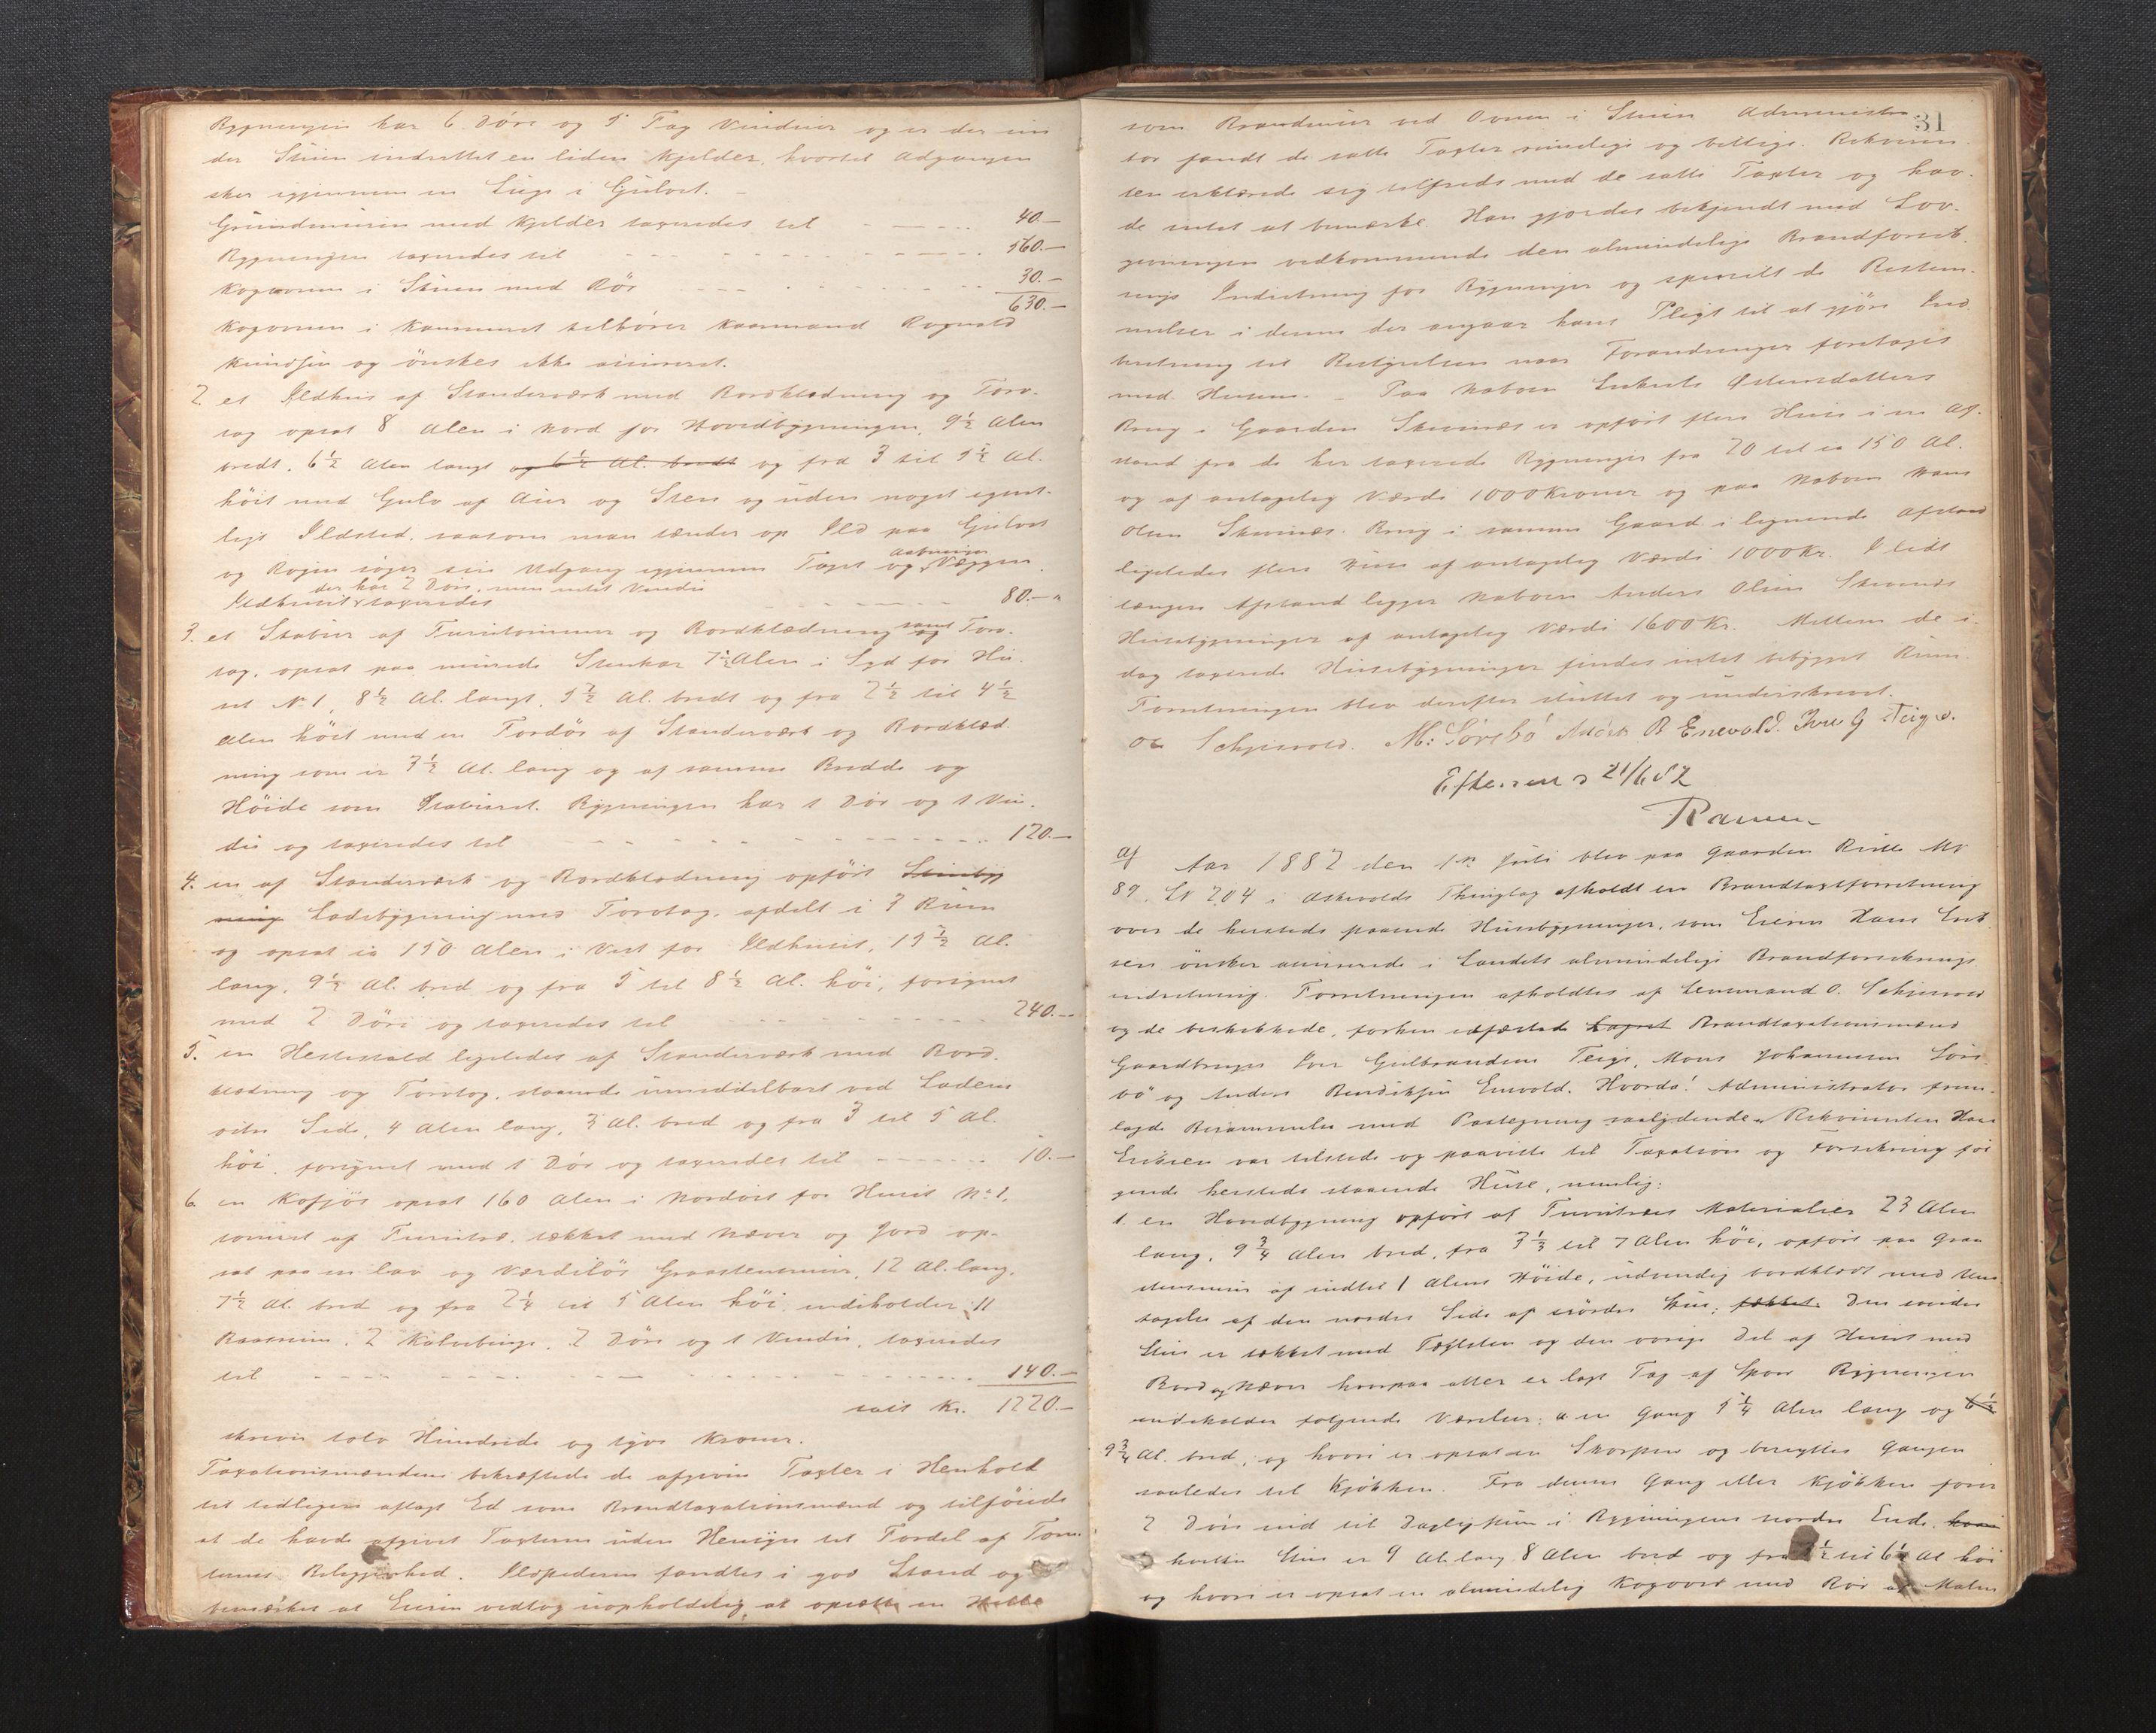 Bygningen har 6 Döre og 5 Fag Vinduer og er der un
der Stuen indrettet en liden Kjelder, hvortil Adgangen
sker igjennem en Luge i Gulvet. –
Grundmuren med Kjelder taxeredes til 40.–
Bygningen taxeredes til 560.–
Kogovnen i Stuen med Rör 30.–
630.–
Kogovnen i Kammeret tilhörer Kaarmand Rognald
Knudsen og önskes ikke assureret.
2. et Ildhus af Standerværk med Bordklædning og Torv-
tag opsat 8 Alen i Nord for Hovedbygningen, 9½ Alen
bredt, 6½ Alen langt og 6½ Al. bredt og fra 3 til 5½ Al.
höit med Gulv af Aur og Sten og uden noget egent-
ligt Ildsted, saasom man tænder op Ild paa Gulvet
og Rögen söger sin Udgang igjennem Taget og Aabninger Væggen.
der har 2 Döre, men intet Vindu
Ildhuset taxeredes 80.– "
3. et Stabur af Furutömmer og Bordklædning samt og Torv-
tag, opsat paa murede Stenkar 7½ Alen i Syd for Hu-
set No 1, 8½ Al. langt, 5½ Al. bredt og fra 2½ til 4½
Alen höit med en Fordör af Standerværk og Bordklæd
ning som er 3½ Al. lang og af samme Bredde og
Höide som Staburet. Bygningen har 1 Dör og 1 Vin-
du og taxeredes til 120.–
4. en af Standerværk og Bordklædning opfört Stuebyg
ning Ladebygning med Torvtag, afdelt i 3 Rum
og opsat ca 150 Alen i Vest for Ildhuset, 19½ Al.
lang, 9½ Al. bred og fra 5 til 8½ Al. höi, forsynet
med 2 Döre og taxeredes til 240.–
5. en Hestestald ligeledes af Standerværk med Bord-
klædning og Torvtag, staaende umiddelbart ved Ladens
Side, 4 Alen lang, 3 Al. bred og fra 3 til 5 Al.
höi, forsynet med 1 Dör og taxeredes til 10.–
6. en Kofjös opsat 160 Alen i Nordöst for Huset No 1,
tömret af Furutræ, tækket med Næver og Jord op-
sat paa en lav og værdilös Graastensmur, 12 Al. lang,
7½ Al. bred og fra 2¼ til 5 Alen höi indeholder 11
Baaserum, 2 Kalvebinge, 2 Döre og 1 Vindu, taxeredes
til 140.–
tils Kr. 1220.–
skriver tolv Hundrede og tyve Kroner.
Taxationsmændene bekræftede de afgivne Taxter i Henhold
til tidligere aflagt Ed som Brandtaxationsmænd og tilföiede
at de havde afgivet Taxterne uden Hensyn til Fordel af Tom-
ternes Beliggenhed. Ildstederne fandtes i god Stand og
bemærkes at Eieren vedtog uopholdelig at opsætte en Helle
31
som Brandmur ved Ovnen i Stuen Administra
tor fandt de satte Taxter rimelige og billige. Rekviren-
ten erklærede sig tilfreds med de satte Taxter og hav-
de intet at bemærke. Han gjordes bekjendt med Lov-
givningen vedkommende den almindelige Brandforsik-
rings Indretning for Bygninger og specielt de Bestem-
melser i denne der angaar hans Pligt til at gjöre Ind
beretning til Bestyrelsen naar Forandringer foretages
med Husene. – Paa Naboen Østensdatters
Brug i Gaarden Skivenæs er opfört flere Huse i en Af-
stand fra de her taxerede Bygninger fra 20 til ca 150 Al.
og af antagelig Værdi 1000 Kroner og paa Naboen Hans
Olsen Skivenæs Brug i samme Gaard i lignende Afstand
ligeledes flere Huse af antagelig Værdi 1000 Kr. I lidt
længere Afstand ligger Naboen Anders Olsen Skivenæs
Husebygninger af antagelig Værdi 1600 Kr. Mellem de i-
dag taxerede Husebygninger findes intet bebygget Rum.
Forretningen blev derefter sluttet og underskrevet.
Ole Schjervold. M: Sørebö Anders B Enevold. Iver G Teige.
Efterseet 21/6 82
Af Aar 1882 den 1ste Juli blev paa Gaarden M No
89, L No 204 i Askevolds Thinglag afholdt en Brandtaxtforretning
over de hersteds staaende Husebygninger, som Eieren Hans Erik
sen önsker assurerede i Landets almindelige Brandforsikrings
indretning. Forretningen afholdtes af Lensmand O. Schjervold
og de beskikkede, forhen edfæstede Laget Brandtaxationsmænd
Gaardbruger Iver Gulbrandsen Teige, Mons Johannesen Söre
bö og Anders Bendiksen Enevold. Hvorda! Administrator frem-
lagde Berammelse med Paategning saalydende. Rekvirenten Hans
Eriksen var tilstede og paaviste til Taxation og Forsikring föl
gende hersteds staaende Huse, nemlig:
1. en Hovedbygning opfört af Furutræes Materialier 23 Alen
lang, 9¾ Alen bred, fra 3⅓ til 7 Alen höi, opfört paa Graa
stensmur af indtil 1 Alens Höide, udvendig bordklædt med Und
tagelse af den nordre Side af nördre Stue; tækket. Den söndre
Stue er tækket med Taglsten og den övrige Del af Huset med
Bord og Næver hvorpaa atter er lagt Tag af Spon Bygningen
indeholder fölgende Værelser: a en Gang 5¼ Alen lang og 6½
9¾ Al. bred, og hvori er opsat en Skorsten og benyttes Gangen
saaledes til Kjökken. Fra denne Gang eller Kjökken förer
2 Döre ind til Dagligstuen i Bygningens nordre Ende. hvori
hvilken Stue er 9 Al. lang 8 Alen bred og fra ½ til 6½ Al höi
og hvori er opsat en almindelig Kogovn med Rör af Malm